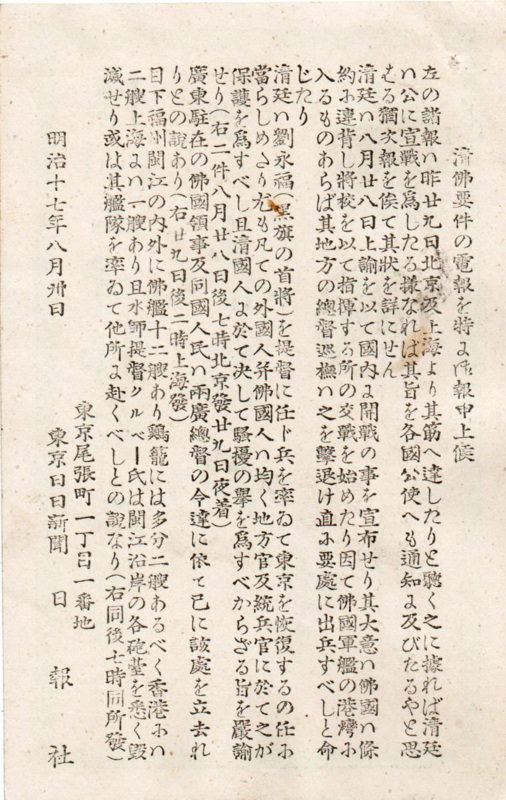 清佛要件の電報を特よ改報申上候
左の諸報ハ昨廿九日北京及上海より其筋へ達したりと聽く之に據れば清廷
ハ公に宣戰を爲したる樣なれば其旨を各國公使へも通知よ及びたるやと思
はる猶次報を俟て其狀を詳にせん
清廷ハ八月廿八日上諭を以て國内よ開戰の事を宣布せり其大意ハ佛國ハ條
約ふ違背し將校を以て指揮する所の交戰を始めたり因て佛國軍艦の港灣ふ
入るものあらば其地方の總督巡撫ハ之を擊退け直ふ要處に出兵すべしと命
じたり
清廷ハ劉永福(黑旗の首將)を提督に任ド兵を率ゐて東京を恢復するの任ふ
當らしめたり尤も凡ての外國人并佛國人ハ均く地方官及統兵官に於て之が
保護を爲すべし且清國人よ於て決して騷擾の擧を爲すべからざる旨を嚴諭
せり(右二件八月廿八日後七時北京發廿九日夜着)
廣東駐在の佛國領事及同國人民ハ兩廣總督の令達に依て已に該處を立去れ
りとの說あり(右廿九日後二時上海發)
目下福州閩江の内外に佛艦十二艘あり鷄龍には多分二艘あるべく香港ふハ
二艘上海よハ一艘あり且水師提督クルベー氏は閩江沿岸の各砲臺を悉く毀
滅せり或は其艦隊を率ゐて他所よ赴くべしとの說なり(右同後七時同所發)
明治十七年八月卅日
東京尾張町一丁目一番地
東京日日新聞 日報社